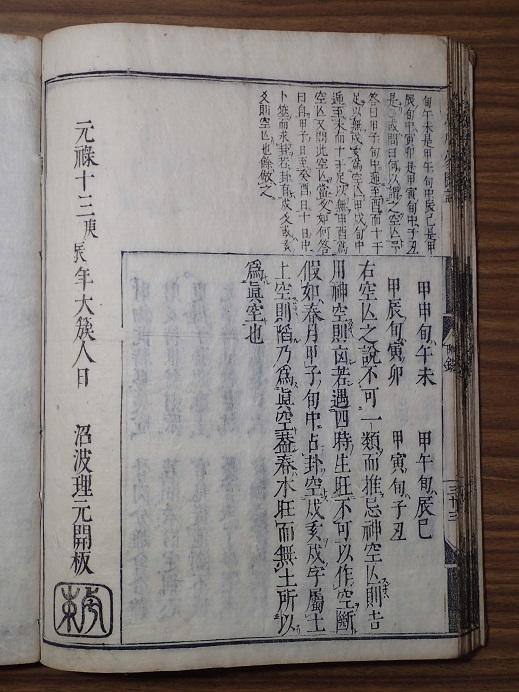 旬午未是甲午旬中辰巳是甲
辰旬中寅卯是甲寅旬中子丑
是
答曰甲子旬中遁至酉而十干
足以無戌亥為空亡甲戌旬中
遁至未而十干足以無申酉為
空亡又問此空亡當
曰自甲子日至癸酉日十日中
卜筮而求卦若卦有戌爻或亥
爻則空亡也餘倣之
甲申旬午未 甲午旬辰巳
甲辰旬寅卯 甲寅旬子丑
右空亡之說不可一類而推忌神空亡則吉
用神空則凶若遇四時生旺不可以作空斷
假如春月甲子旬中占卦空戌亥戌字屬土
土空則陷乃為眞空蓋春水旺而無土所以
為眞空也
元祿十三庚辰年大簇人日 沼波理元開板
附錄